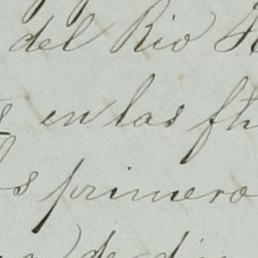 del Rio
en las
primero
de di